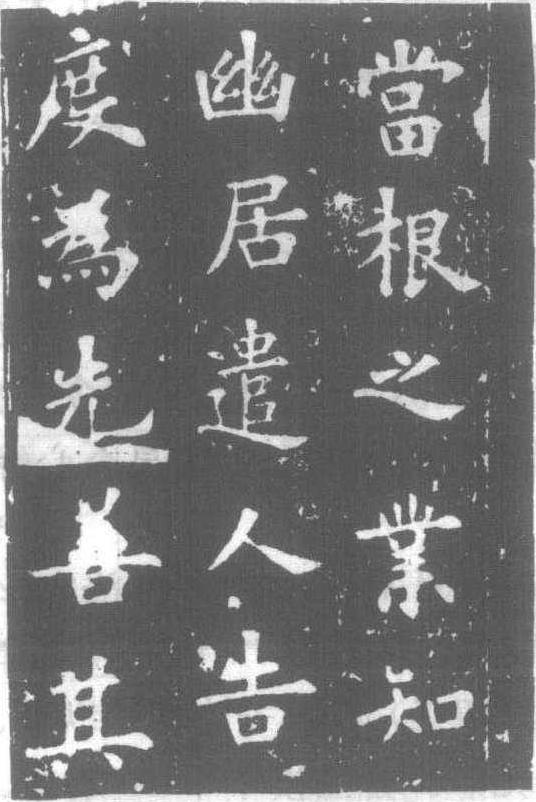 當根之業知
幽居遣人告
度為先善其